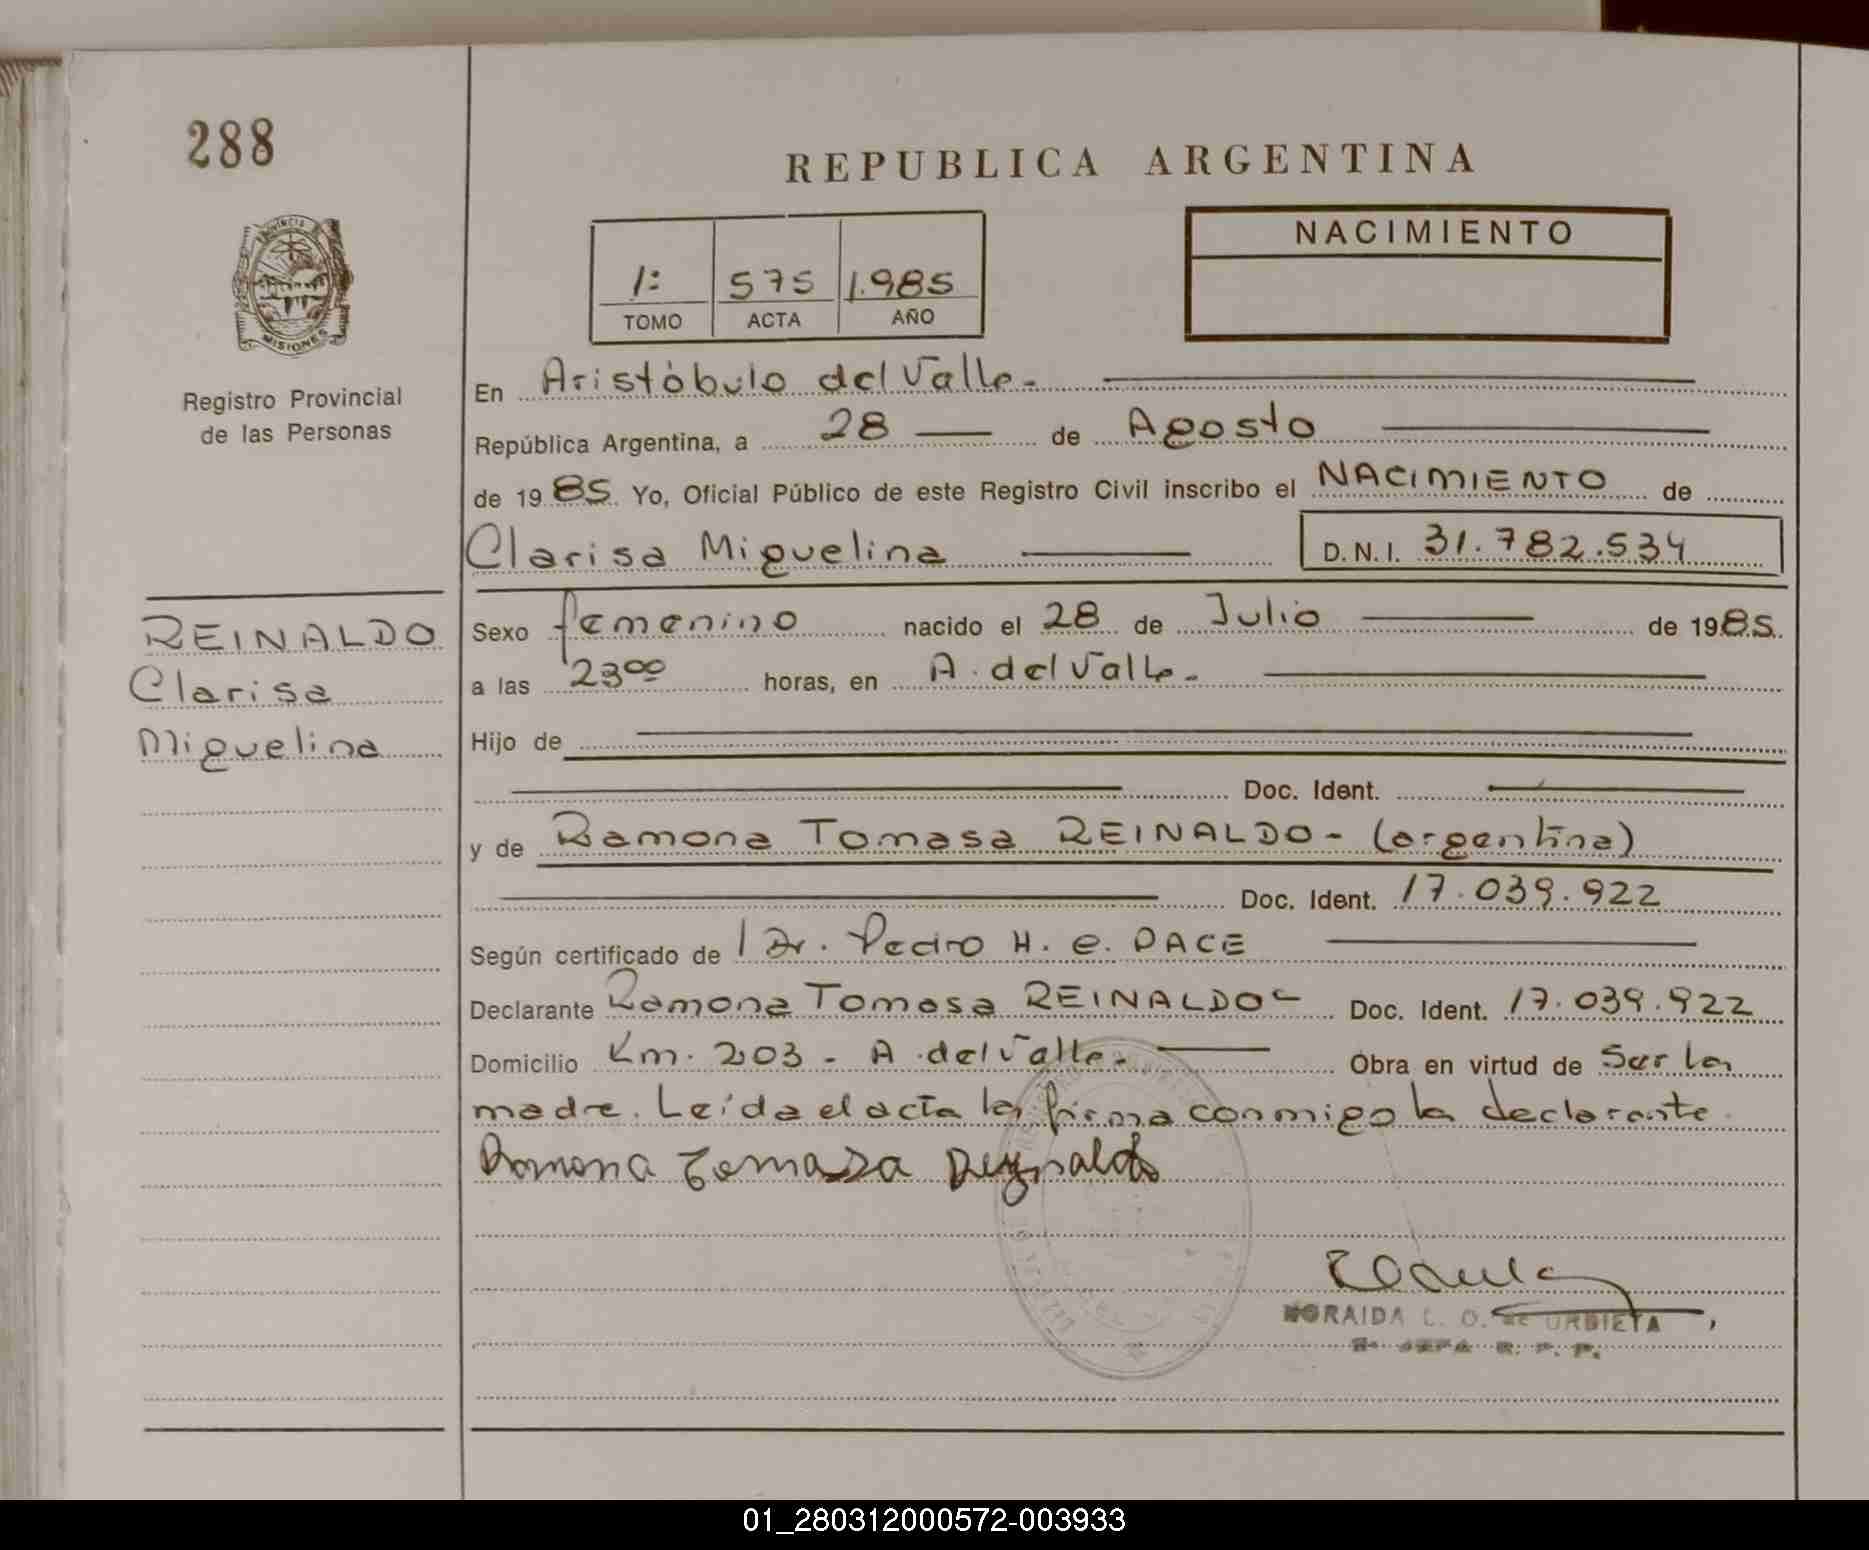 288
REPUBLICA ARGENTINA
NACIMIENTO
1: 575 1.985
TOMO ACTA AÑO
PROVINCIA DE
MISIONES
Registro Provincial
de las Personas
En Aristóbulo del Valle.
República Argentina, a 28 de Agosto
de 1985. Yo, Oficial Público de este Registro Civil inscribo el NACIMIENTO de
Clarisa Miguelina D.N.I. 31.782.534
REINALDO
Clarisa
Miguelina
Sexo femenino nacido el 28 de Julio de 1985.
a las 23⁰⁰ horas, en A. del Valle.
Hijo de
Doc. Ident.
y de Ramona Tomasa REINALDO - (argentina)
Doc. Ident. 17.039.922
Según certificado de / Dr. Pedro H. e. DACE
Declarante Ramona Tomasa REINALDO Doc. Ident. 17.039.922
Domicilio Km. 203 - A. del Valle. Obra en virtud de Ser la
madre. Leída el acta la firma conmigo la declarante
Ramona Tomasa Reynaldo
NORAIDA L. O. de URBIETA
JEFA R. P. P.
01_280312000572-003933